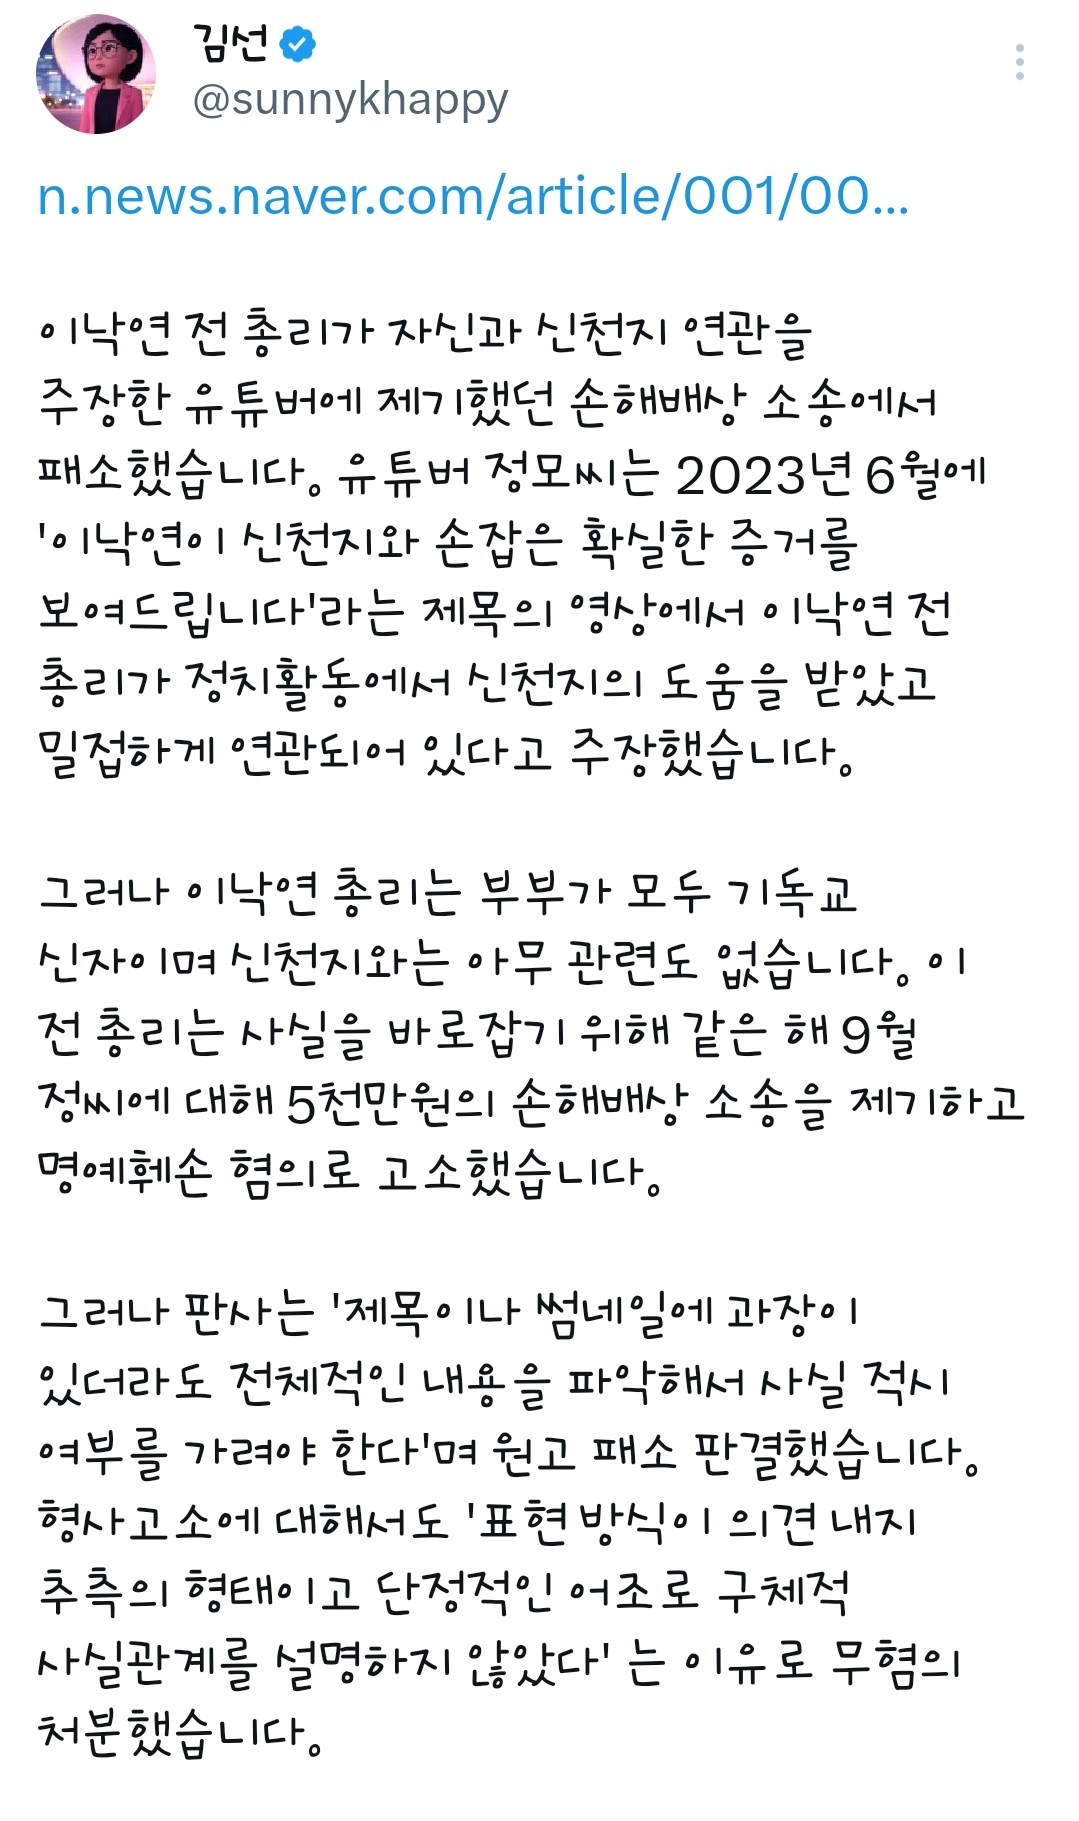 김선
@sunnykhappy
n.news.naver.com/article/001/00...
이낙연 전 총리가 자신과 신천지 연관을
주장한 유튜버에 제기했던 손해배상 소송에서
패소했습니다. 유튜버 정모씨는 2023년 6월에
'이낙연이 신천지와 손잡은 확실한 증거를
보여드립니다'라는 제목의 영상에서 이낙연 전
총리가 정치활동에서 신천지의 도움을 받았고
밀접하게 연관되어 있다고 주장했습니다.
그러나 이낙연 총리는 부부가 모두 기독교
신자이며 신천지와는 아무 관련도 없습니다. 이
전 총리는 사실을 바로잡기 위해 같은 해 9월
정씨에 대해 5천만원의 손해배상 소송을 제기하고
명예훼손 혐의로 고소했습니다.
그러나 판사는 '제목이나 썸네일에 과장이
있더라도 전체적인 내용을 파악해서 사실 적시
여부를 가려야 한다'며 원고 패소 판결했습니다.
형사고소에 대해서도 '표현 방식이 의견 내지
추측의 형태이고 단정적인 어조로 구체적
사실관계를 설명하지 않았다' 는 이유로 무혐의
처분했습니다.